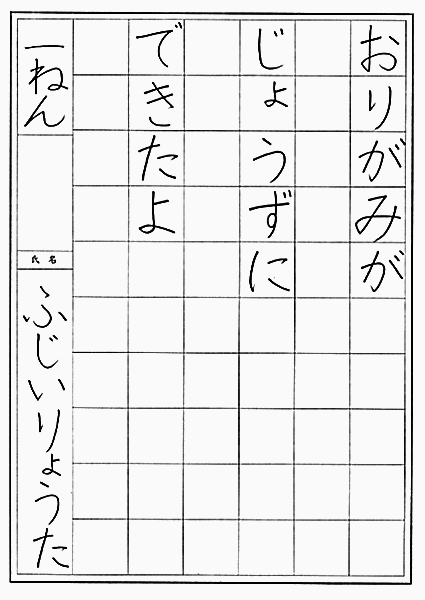 おりがみが
じょうずに
できたよ
一ねん
氏名
ふじいりょうた